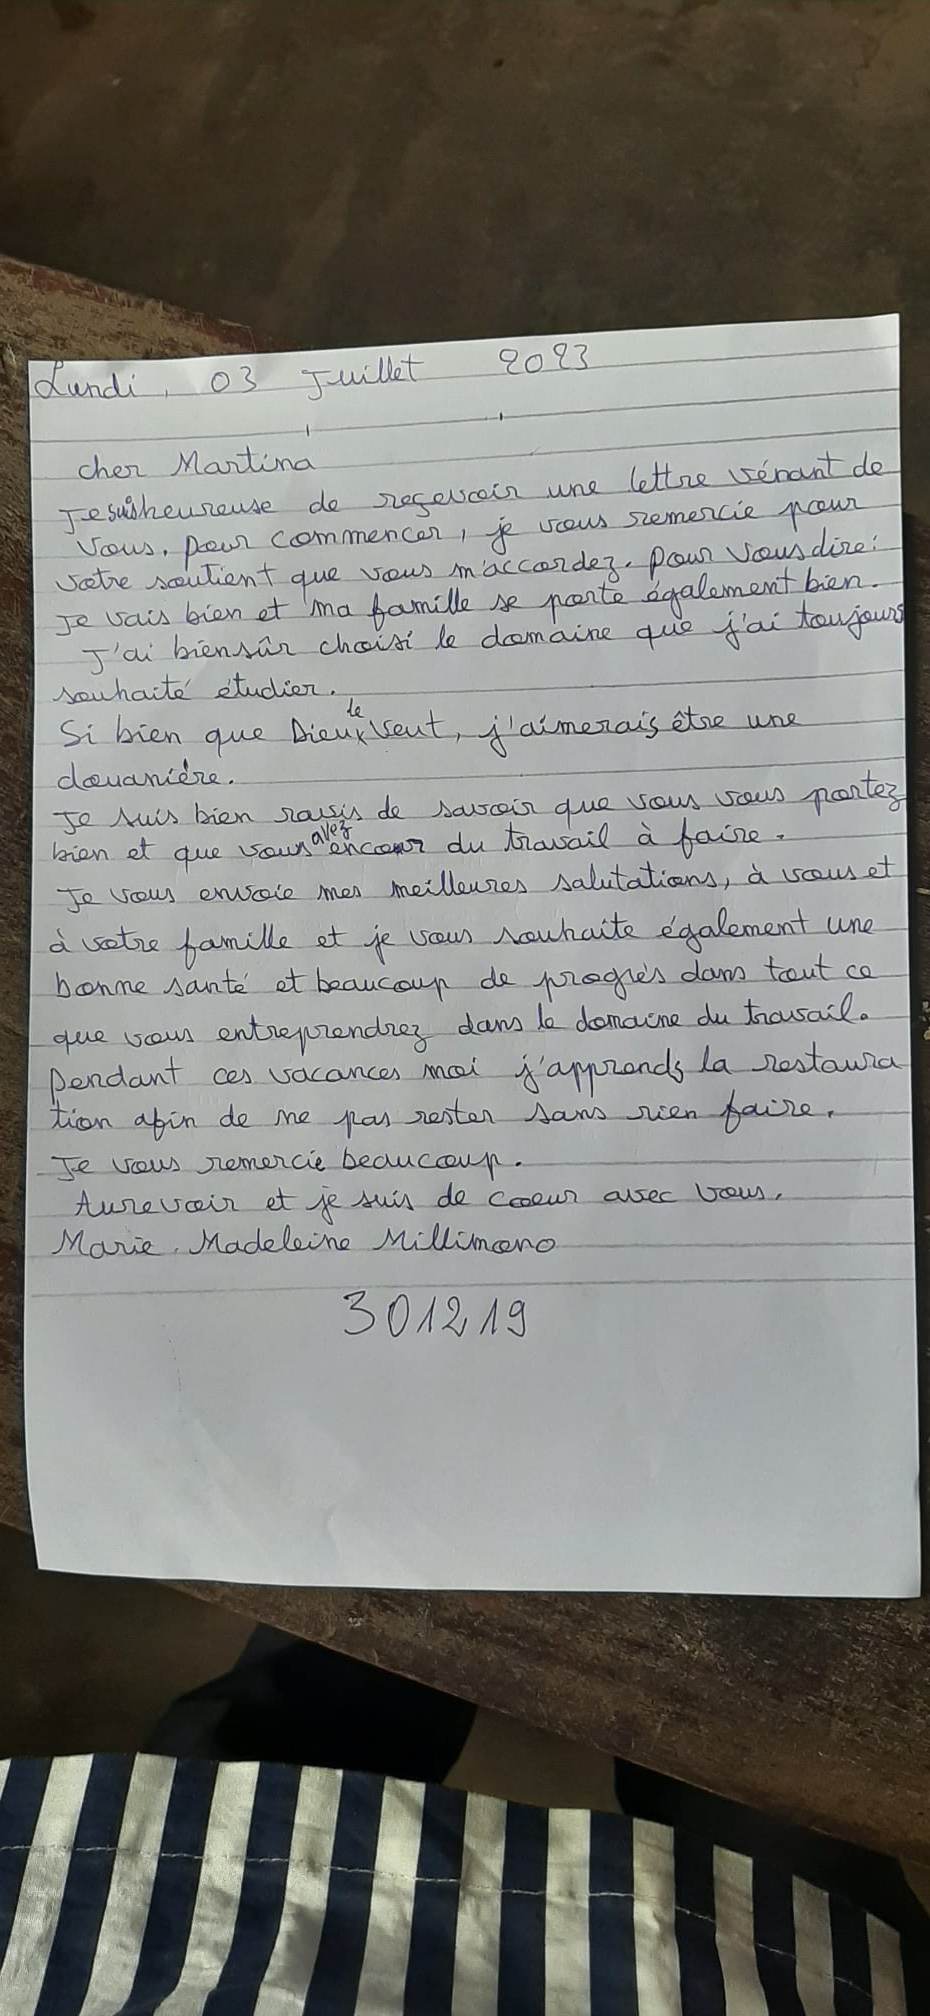 Lundi, 03 Juillet 2023
cher Martina
Je suis heureuse de reçevoir une lettre vénant de
vous. pour commencer, je vous remercie pour
votre soutient que vous m'accordez. pour vous dire:
Je vais bien et ma famille se porte également bien.
J'ai biensûr choisi le domaine que j'ai toujours
souhaité étudier.
Si bien que Dieu le veut, j'aimerais être une
douanière.
Je suis bien ravis de savoir que vous vous portez
bien et que vous avez encour du travail à faire.
Je vous envoie mes meilleures salutations, à vous et
à votre famille et je vous souhaite également une
bonne santé et beaucoup de progrès dans tout ce
que vous entreprendrez dans le domaine du travail.
Pendant ces vacances moi j'apprends la restaura
tion afin de ne pas rester sans rien faire.
Je vous remercie beaucoup.
Aurevoir et je suis de coeur avec vous.
Marie. Madeleine Millimono
301219